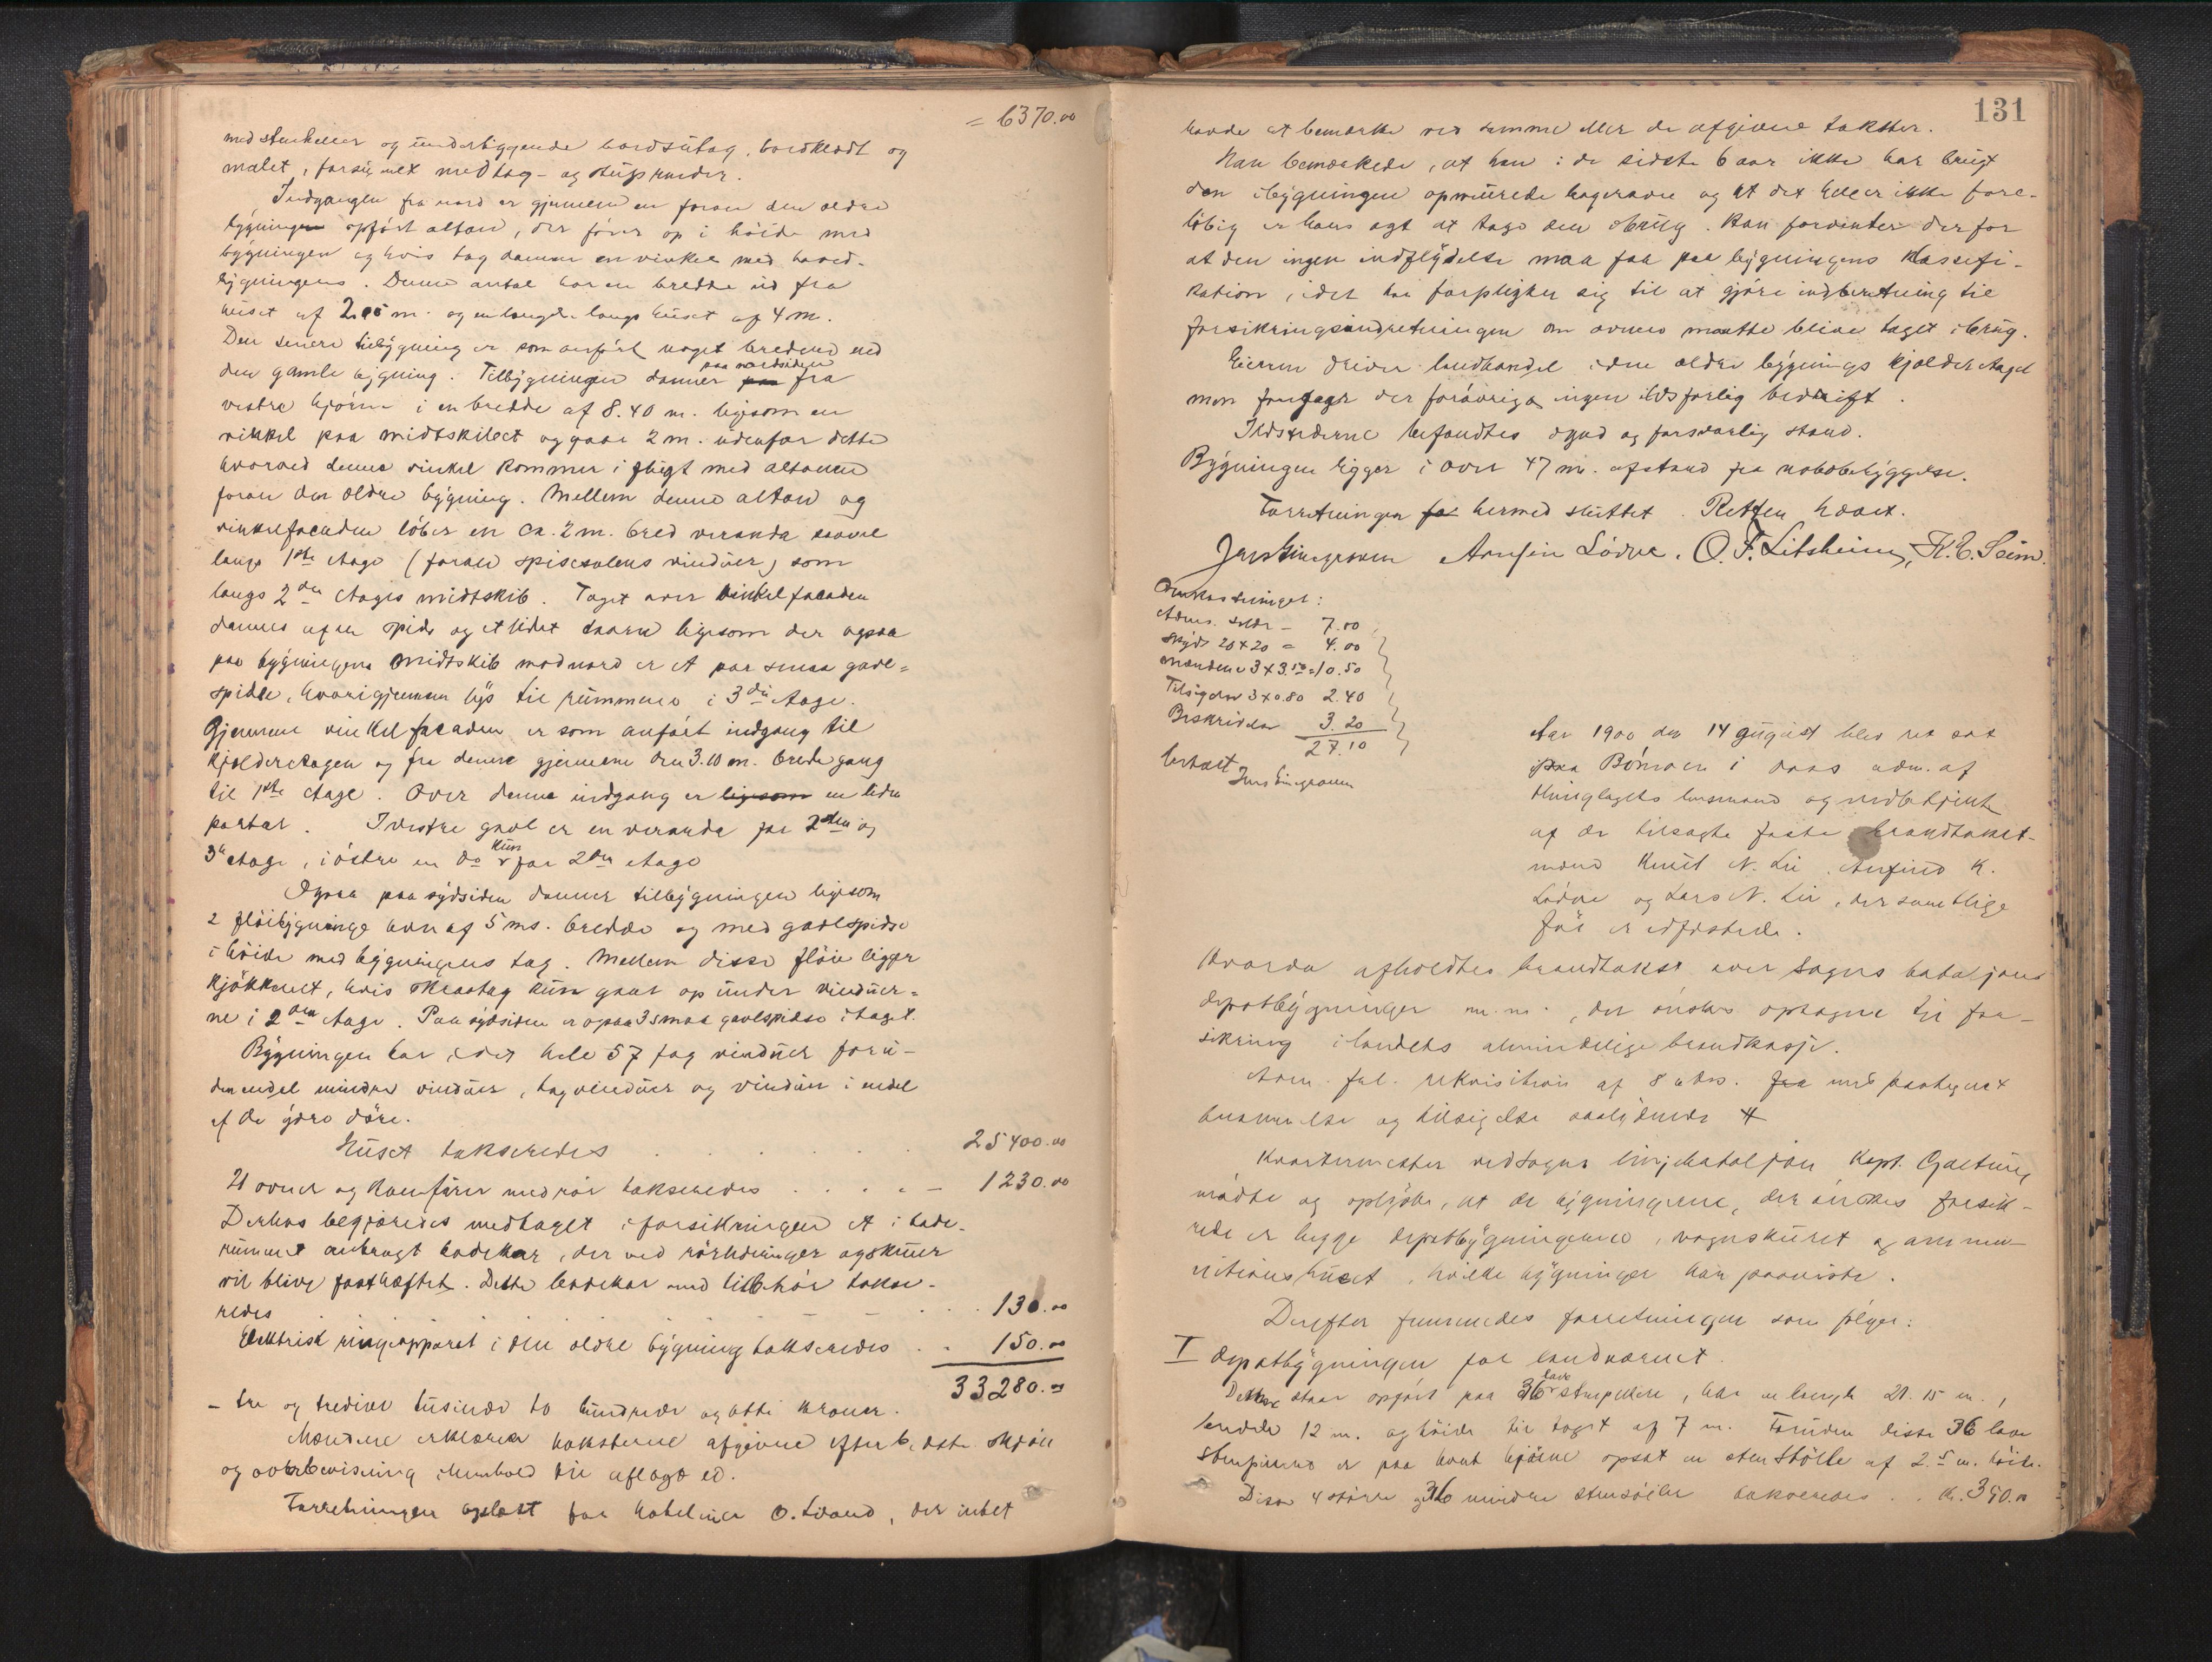 = 6370.00
med stenheller og underliggende bordsutag, bordklædt og
malet, forsynet med tag- og stuprender.
Indgangen fra nord er gjennem en foran den ældre
bygningen opført altan, der fører op i høide med
bygningen og hvis tag danner en vinkel med hoved-
bygningens. Denne har en bredde ud fra
huset af 2.05 m. og en længde langs huset af 4 m.
Den senere tilbygning er som anført noget bredere end
den gamle bygning. Tilbygningen danner paa nordsiden fra
vestre hjørne i en bredde af 8.40 m. ligesom en
vinkel paa midtskibet og gaar 2 m. udenfor dette
hvorved denne vinkel kommer i flugt med altanen
foran den ældre bygning. Mellem denne altan og
vinkelfacaden løber en ca. 2 m. bred veranda saavel
langs 1ste Etage (foran spisesalens vinduer) som
langs 2den Etages midtskib. Taget over vinkelfacaden
dannes af en spids og et lidet taarn ligesom der ogsaa
paa bygningens midtskib mod nord er et par smaa gavl-
spidse, hvorigjennem lys til rummene i 3die Etage.
Gjennem vinkelfacaden er som anført indgang til
kjælderetagen og fra denne gjennem den 3.10 m. brede gang
til 1ste Etage. Over denne indgang er ligesom en liden
portal. I vestre gavl er en veranda for 2den og
3die Etage, i østre en do kun for 2den Etage
Ogsaa paa sydsiden danner tilbygningen ligesom
2 fløibygninge hver af 5 ms. bredde og med gavlspidse
i høide med bygningens tag. Mellem disse fløie ligger
kjøkkenet, hvis skraatag kun gaar op under vinduer-
ne i 2den Etage. Paa sydsiden er ogsaa 3 smaa gavlspidse i taget.
Bygningen har i det hele 57 fag vinduer foru-
den endel mindre vinduer, tagvinduer og vinduer i endel
af de ydre døre.
Huset takseredes . . . . . 25400.00
21 ovner og komfurer med rør takseredes . . . . 1230.00
Derhos begjæredes medtaget i forsikringen et i bade-
rummet anbragt badekar, der ved rørledninger og skruer
vil blive fasthæftet. Dette badekar med tilbehør takse-
redes . . . 130.00
Elektrisk ringeapparat i den ældre bygning takseredes . . 150.00
33280.00
- tre og tredive tusinde to hundrede og otti kroner.
Mændene erklærer taksterne afgivne efter bedste skjøn
og overbevisning i henhold til aflagt ed.
Forretningen oplæst for hoteleier O. Lirand, der intet
131
havde at bemærke ved samme eller de afgivne takster.
Han bemærkede, at han i de sidste 6 aar ikke har brugt
den i bygningen opmurede bagerovn og at det heller ikke fore-
løbig er hans agt at tage den i brug. Han forventer derfor
at den ingen indflydelse maa faa paa bygningens klassifi-
kation, idet han forpligter sig til at gjøre indberetning til
forsikringsindretningen om ovnen maatte blive taget i brug.
Eieren driver landhandel i den ældre bygnings kjælderetage
men foregaar der forøvrigt ingen ildsfarlig bedrift.
Ildstederne befandtes i god og forsvarlig stand.
Bygningen ligger i over 47 m. afstand fra nabobebyggelse.
Forretningen hermed sluttet. Retten hævet.
Jens Gjermo Arnfin Lødve. O. F. Litsheim, K. E. Seim.
Omkostninger:
Adms. - 7.00
Skyds 20 x 20 = 4.00
Mændene 3 x 3.50 = 10.50
Tilsigelse 3 x 0.80 2.40
Beskrivelse 3.20
27.10
betalt
Aar 1900 den 14 august blev ret sat
paa Bømoen i Voss adm. af
thinglagets lensmand og medbetjent
af de tilsagte faste brandtakst-
mænd Knut N. Lie, Anfind K.
Lødve og Lars N. Lie, der samtlige
før er edfæstede.
Hvorda afholdtes brandtakst over Sogns bataljons
depotbygninger m.m., der ønskes optagne til for-
sikring i landets almindelige brandkasse.
Adm. frl. rekvisition af 8 ds. med paategnet
berammelse og tilsigelse saalydende #
Kvartermester ved Sogns linjebataljon Kapt.
mødte og oplyste, at de bygningerne, der ønskes forsik-
rede er begge depotbygningerne, vognskuret og ammu-
nitionshuset, hvilke bygninger han paaviste.
Derefter fremmedes forretningen som følger:
I Depotbygningen for landværnet.
Denne staar opført paa 36 lave stenpillere, har en længde 21.15 m.,
bredde 12 m. og høide til taget af 7 m. Foruden disse 36 lave
stenpillere er paa hvert hjørne opsat en stenstøtte af 2.5 m. høide.
Disse 4 større og 36 mindre stensøiler takseredes . . Kr. 390.00